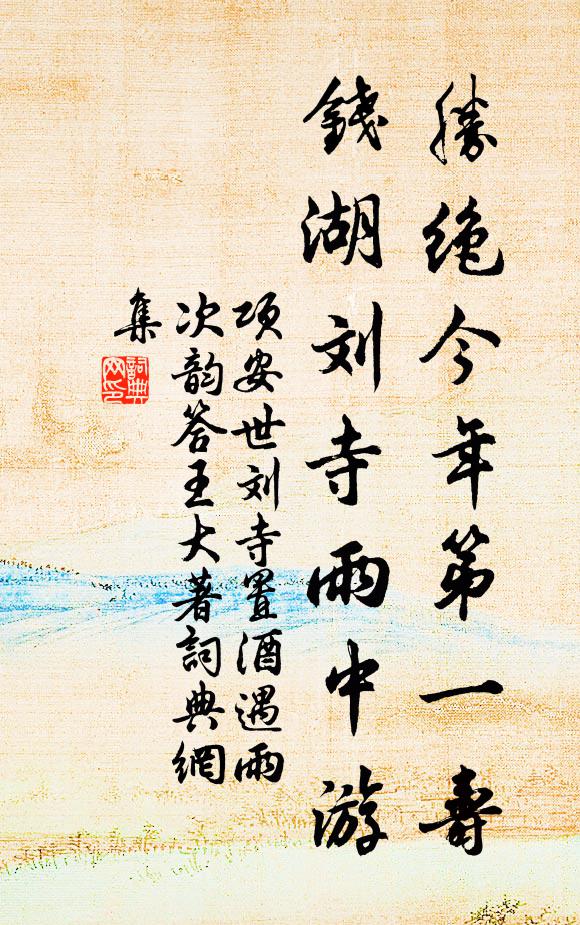 勝絶今年第一壽
錢湖刘寺雨中游
项安世刘寺置酒遇雨
次韵答王大著詞典網
集
詞典
网印